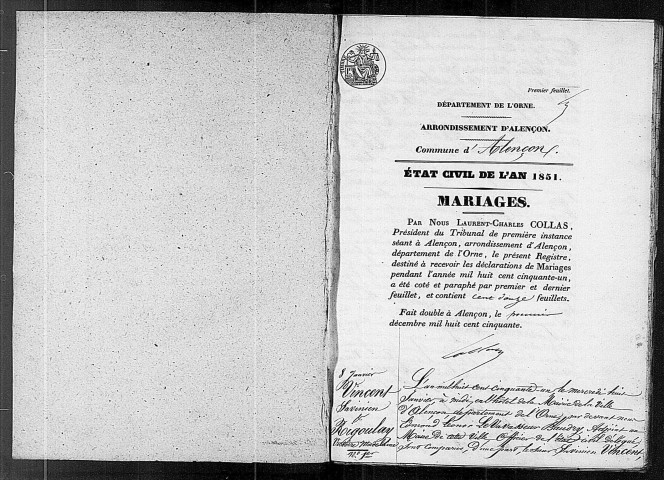 Premier feuillet.
DÉPARTEMENT DE L'ORNE.
ARRONDISSEMENT D'ALENÇON.
Commune d'Alençon.
ÉTAT CIVIL DE L'AN 1851.
MARIAGES.
PAR NOUS LAURENT-CHARLES COLLAS,
Président du Tribunal de première instance
séant à Alençon, arrondissement d'Alençon,
département de l'Orne, le présent Registre,
destiné à recevoir les déclarations de Mariages
pendant l'année mil huit cent cinquante-un,
a été coté et paraphé par premier et dernier
feuillet, et contient cent douze feuillets.
Fait double à Alençon, le premier
décembre mil huit cent cinquante.
8 Janvier
Vincent
Savinien
&
Rigoulay
N.º 1er
L'an mil huit cent cinquante-un le mercredi huit
Janvier, à midi, en l'hôtel de la Mairie de la Ville
d'Alençon, département de l'Orne, par devant nous
Edmond Le Vavasseur Adjoint au
Maire de cette Ville, Officier de l'état civil
sont comparus, d'une part, le sieur Savinien Vincent,